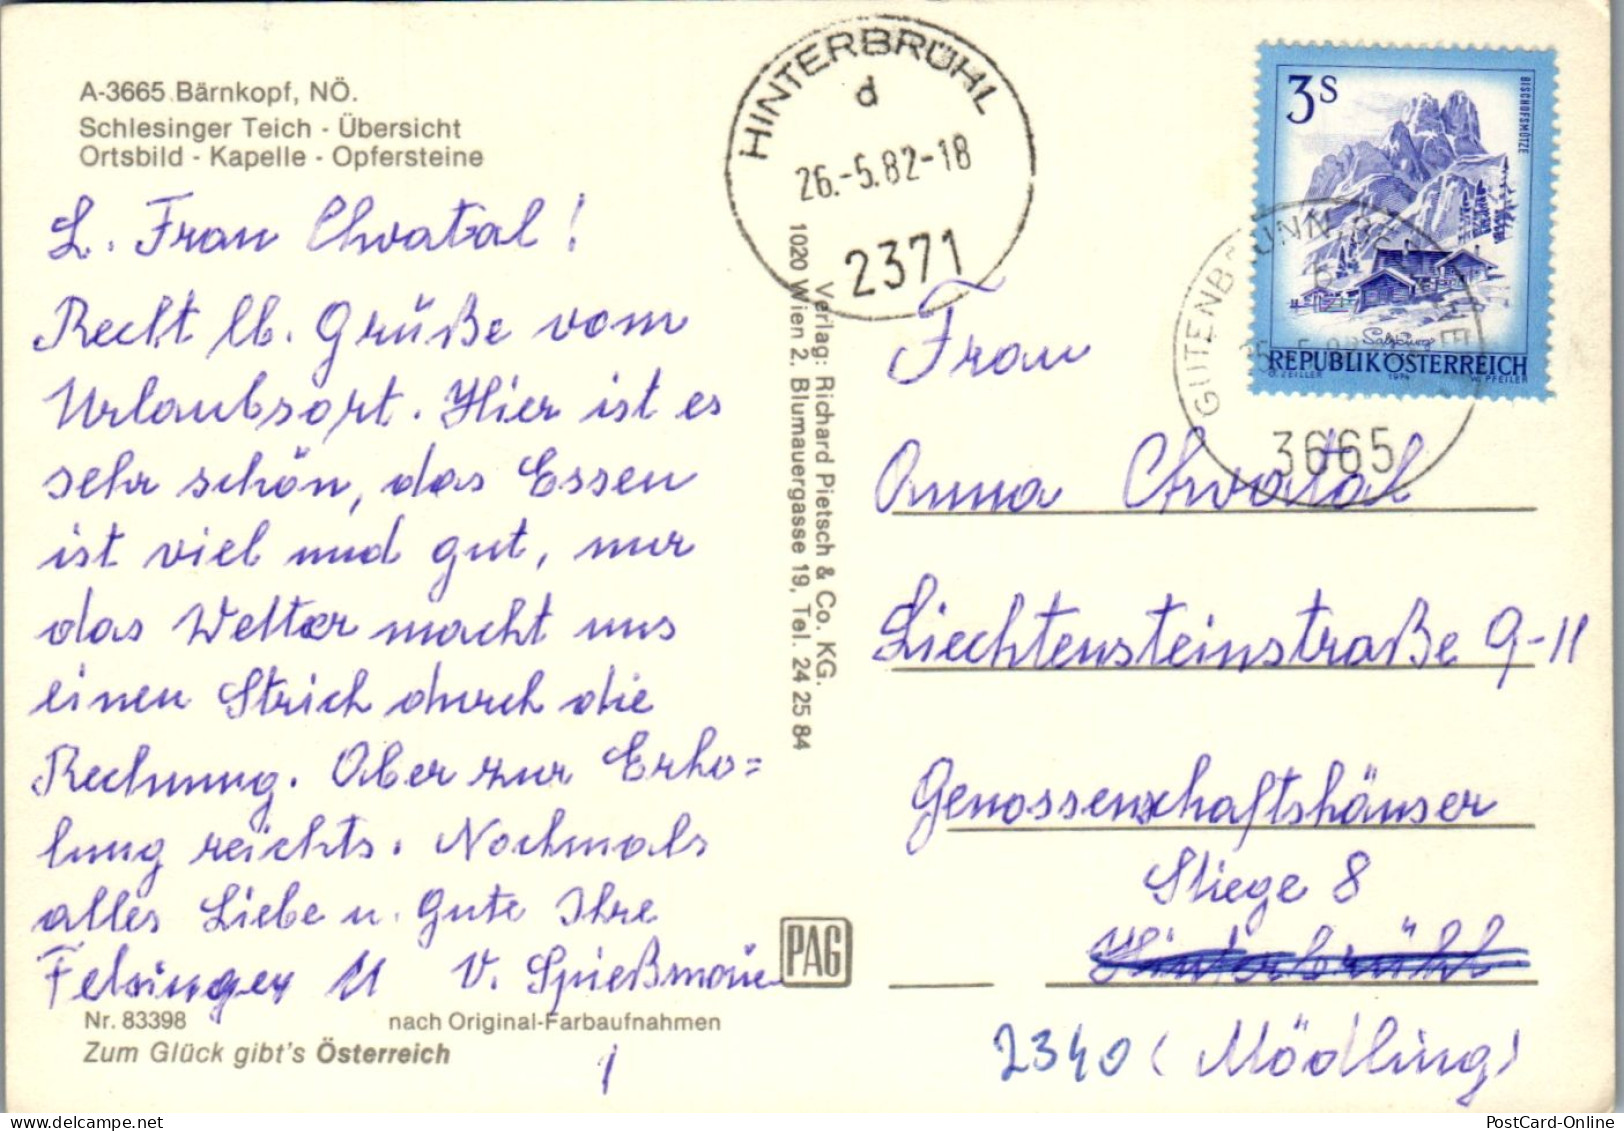 A-3665 Bärnkopf, NÖ.
Schlesinger Teich - Übersicht
Ortsbild - Kapelle - Opfersteine
L. Frau Chvatal!
Recht lb. Grüße vom
Urlaubsort. Hier ist es
sehr schön, das Essen
ist viel und gut, nur
das Wetter macht uns
einen Strich durch die
Rechnung. Aber zur Erho=
lung reichts. Nochmals
alles Liebe u. Gute Ihre
Felsinger U V. Spießmaie
Nr. 83398 nach Original-Farbaufnahmen
Zum Glück gibt's Österreich
HINTERBRÜHL
d
26.-5.82-18
2371
Verlag: Richard Pietsch & Co. KG.
1020 Wien 2. Blumauergasse 19, Tel. 24 25 84
PAG
3S
BISCHOFSMÜTZE
Salzburg
REPUBLIK ÖSTERREICH
O. ZEILLER 1974 W. PFEILER
GUTENBRUNN
3665
Frau
Anna Chvatal
Liechtensteinstraße 9-11
Genossenschaftshäuser
Stiege 8
Hinterbrühl
2340 (Mödling)
PostCard-Online